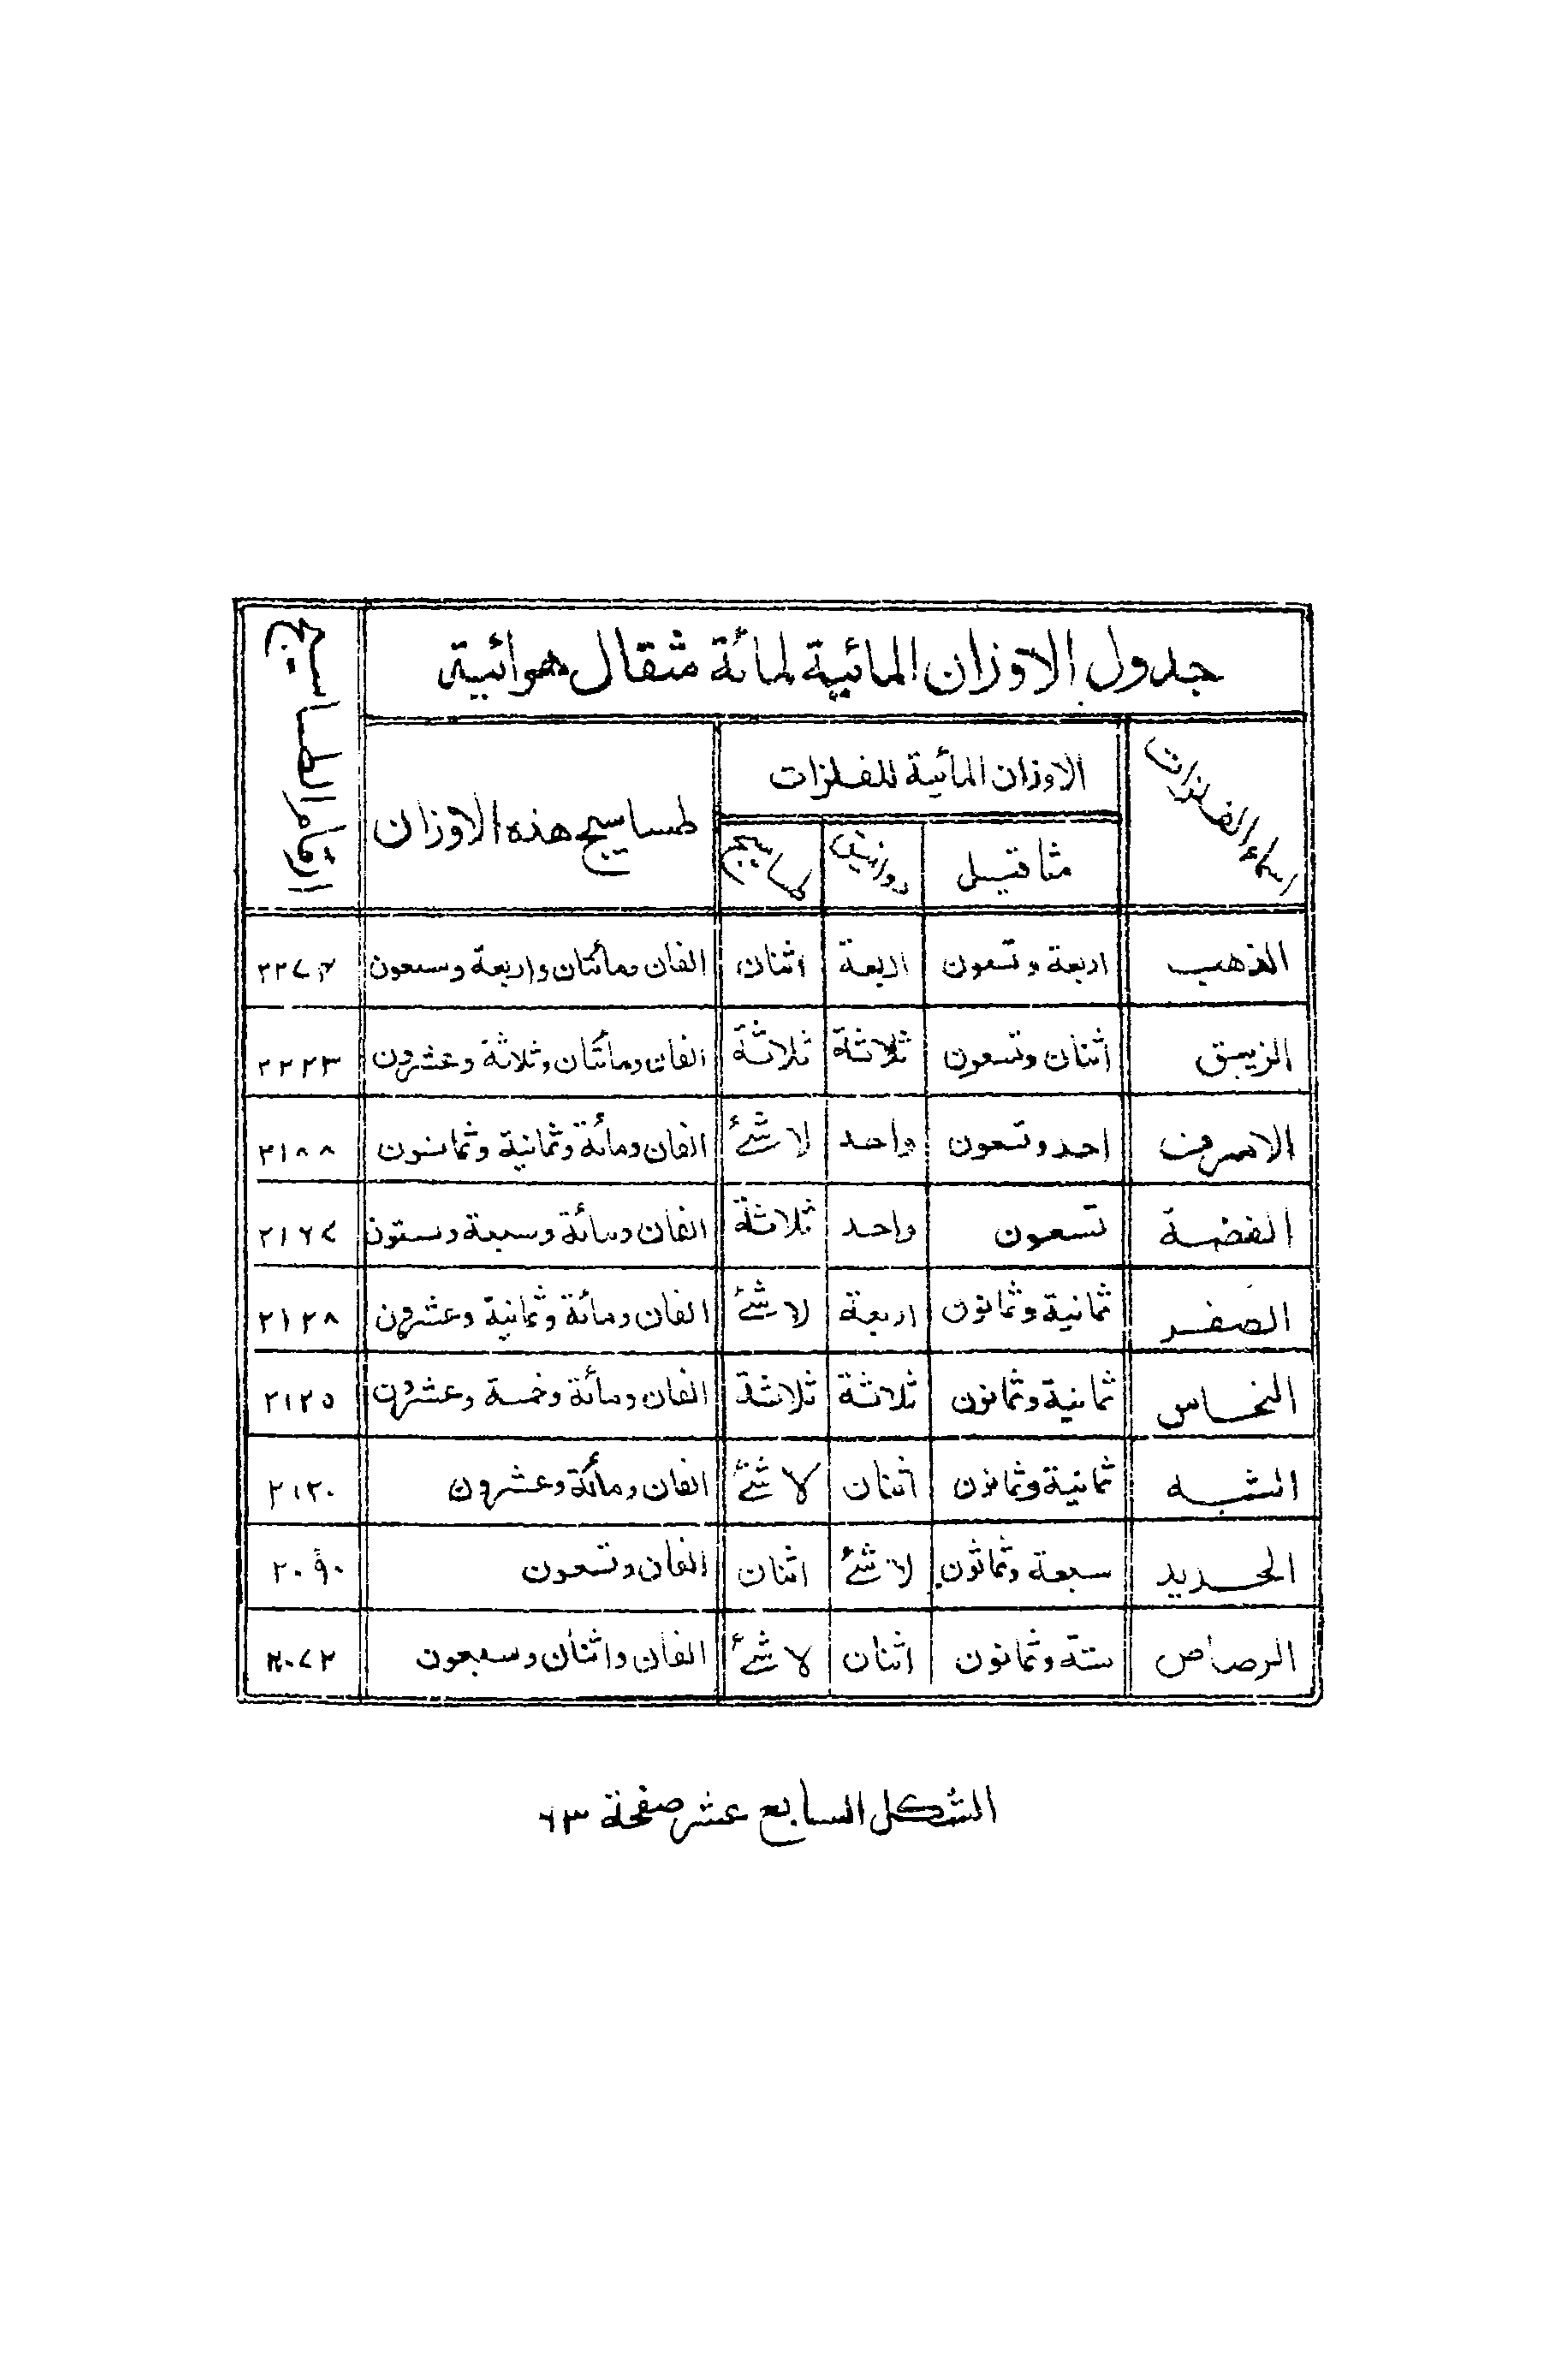 جدول الاوزان المائية لمائة مثقال هوائية
ارقام الطساسيج
اسماء الفلزات
الاوزان المائية للفلزات
طساسيج هذه الاوزان
مثاقيل دوانيق طساسيج
الذهب اربعة وتسعون اربعة اثنان الفان ومأتان واربعة وسبعون ٢٢٧٤
الزيبق اثنان وتسعون ثلاثة ثلاثة الفان ومأتان وثلاثة وعشرون ٢٢٢٣
الاسرب احد وتسعون واحد لا شئ الفان ومأئة وثمانية وثمانون ٢١٨٨
الفضة تسعون واحد ثلاثة الفان ومأئة وسبعة وستون ٢١٦٧
الصفر ثمانية وثمانون اربعة لا شئ الفان ومأئة وثمانية وعشرون ٢١٢٨
النحاس ثمانية وثمانون ثلاثة ثلاثة الفان ومأئة وخمسة وعشرون ٢١٢٥
الشبه ثمانية وثمانون اثنان لا شئ الفان ومأئة وعشرون ٢١٢٠
الحديد سبعة وثمانون لا شئ اثنان الفان وتسعون ٢٠٩٠
الرصاص ستة وثمانون اثنان لا شئ الفان واثنان وسبعون ٢٠٧٢
الشكل السابع عشر صفحة ٦٣